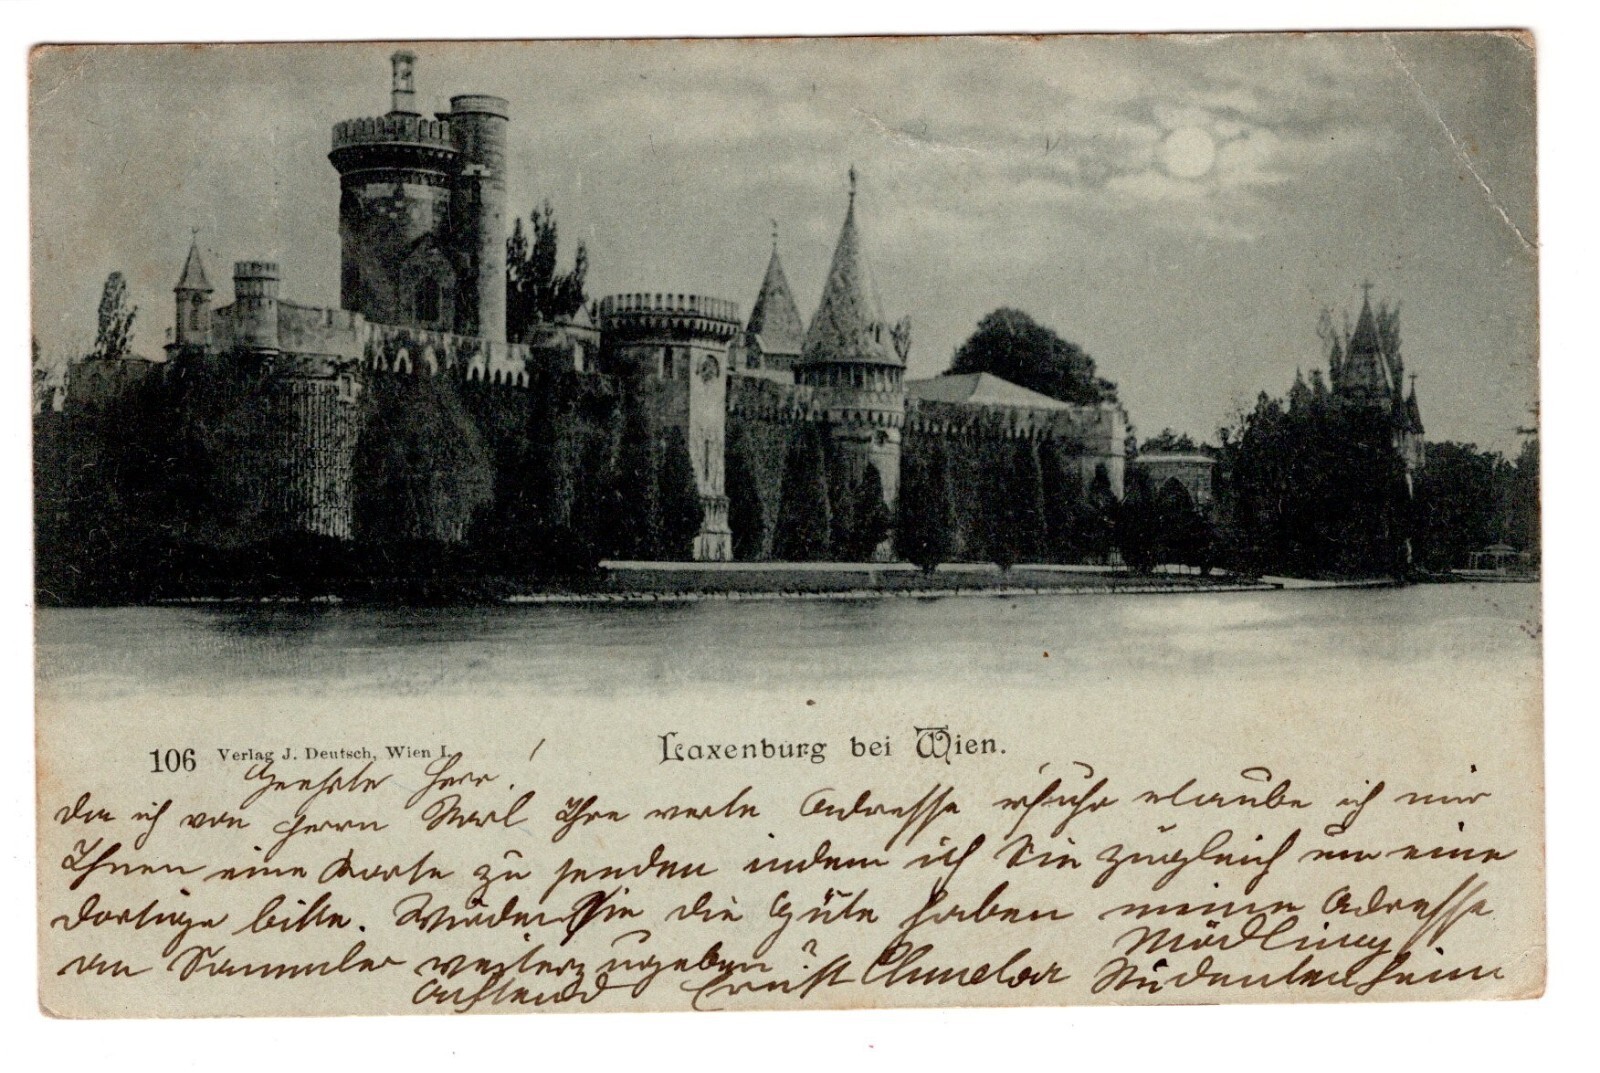 106 Verlag J. Deutsch, Wien I.
Laxenburg bei Wien.
Geehrter Herr!
Da ich von Herrn Karl Ihre werte Adresse erfuhr erlaube ich mir
Ihnen eine Karte zu senden indem ich Sie zugleich um eine
dortige bitte. Würden Sie die Güte haben meine Adresse
an Sammler weiterzugeben?
Achtend Ernst
Mödling
Studentenheim